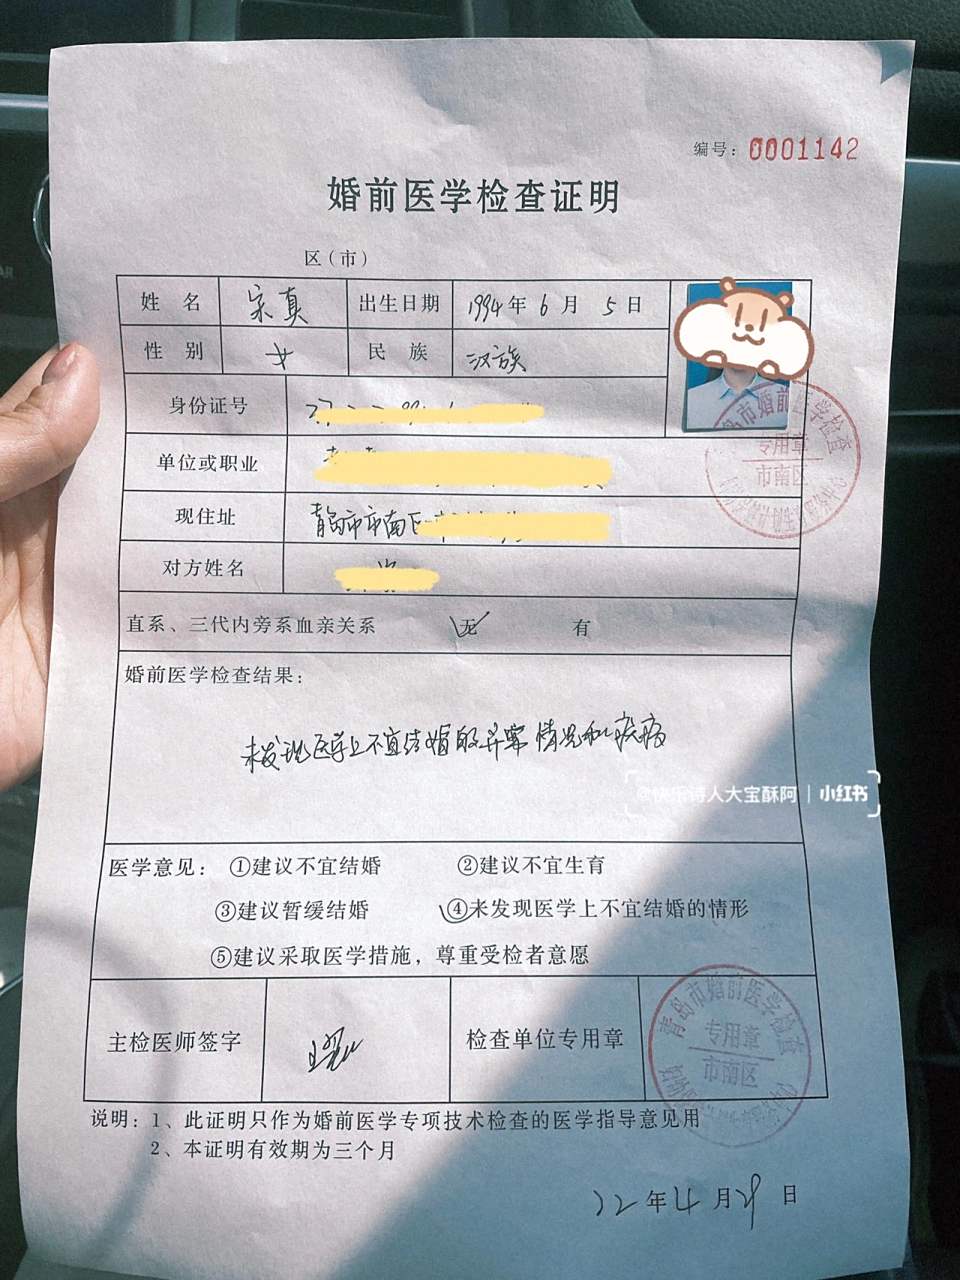 编号：0001142
婚前医学检查证明
区（市）
姓 名 宗真 出生日期 1994年6月5日
性 别 女 民 族 汉族
身份证号
单位或职业
现住址 青岛市市南区
对方姓名
直系、三代内旁系血亲关系 无 有
婚前医学检查结果：
未发现医学上不宜结婚的异常情况和疾病
医学意见： ①建议不宜结婚 ②建议不宜生育
③建议暂缓结婚 ④未发现医学上不宜结婚的情形
⑤建议采取医学措施，尊重受检者意愿
主检医师签字 检查单位专用章
说明：1、此证明只作为婚前医学专项技术检查的医学指导意见用
2、本证明有效期为三个月
22年4月 日
岛市婚前医学检查
专用章
市南区
青岛市婚前医学检查
专用章
市南区
诗人大宝酥阿 | 小红书